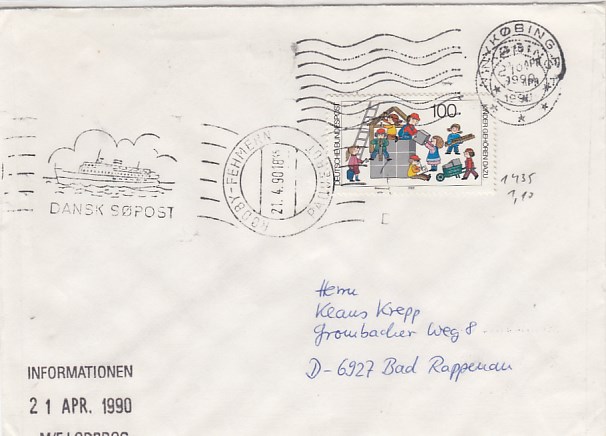 NYKØBING F
1990
DEUTSCHE BUNDESPOST
100
KINDER GEHÖREN DAZU
RØDBY-FEHMERN
21.4.90 18
PALUDBEFØRT
DANSK SØPOST
1435
1,10
Herrn
Klaus Krepp
Grombacher Weg 8
D-6927 Bad Rappenau
INFORMATIONEN
21 APR. 1990
M/F LODBROG